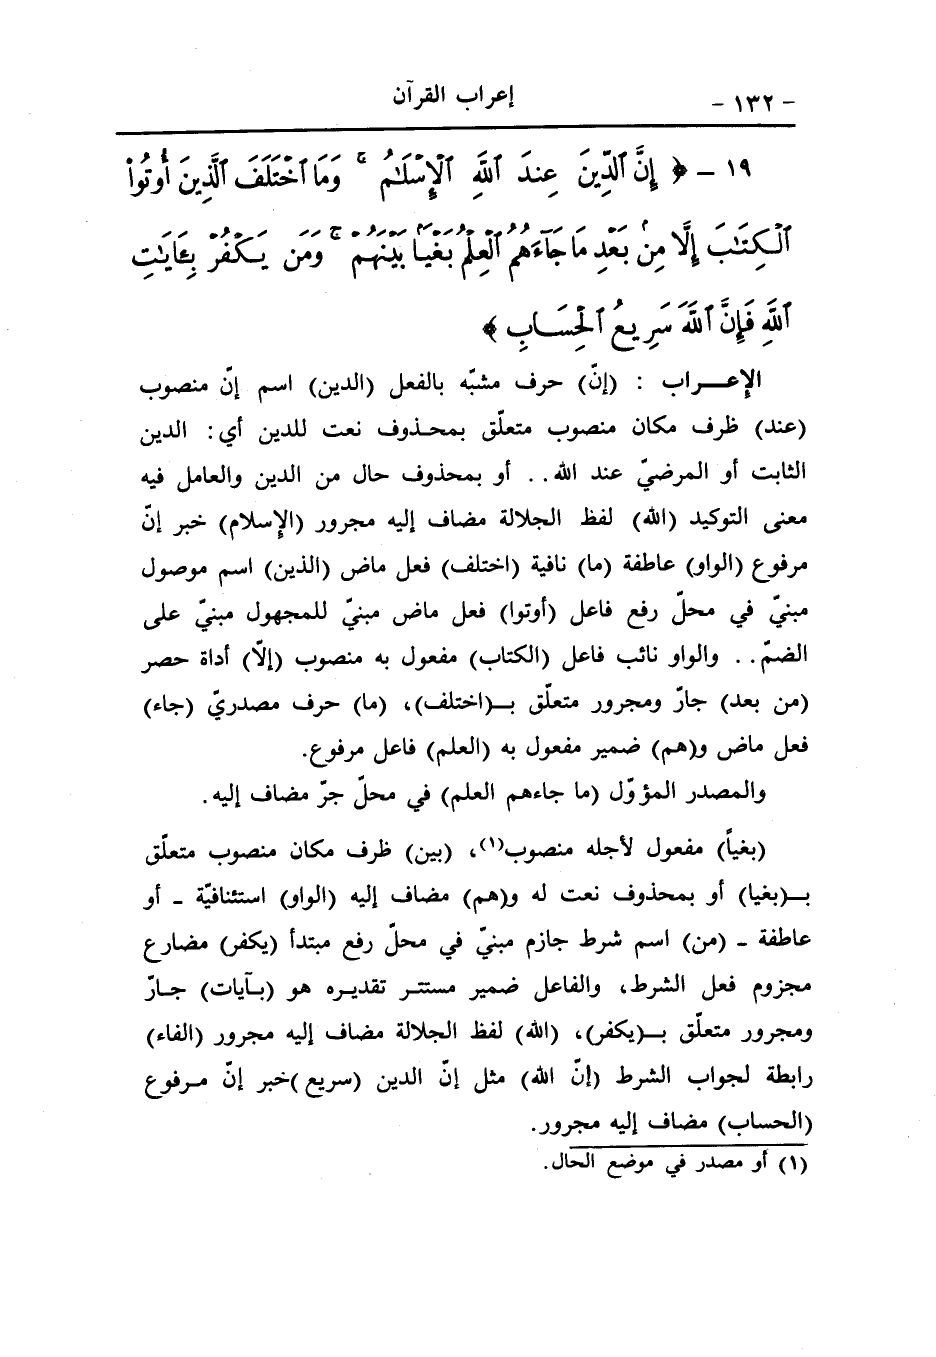 - ١٣٢ - إعراب القرآن
١٩ - ﴿ إِنَّ ٱلدِّينَ عِندَ ٱللَّهِ ٱلْإِسْلَٰمُ ۗ وَمَا ٱخْتَلَفَ ٱلَّذِينَ أُوتُوا۟
ٱلْكِتَٰبَ إِلَّا مِنۢ بَعْدِ مَا جَآءَهُمُ ٱلْعِلْمُ بَغْيًۢا بَيْنَهُمْ ۗ وَمَن يَكْفُرْ بِـَٔايَٰتِ
ٱللَّهِ فَإِنَّ ٱللَّهَ سَرِيعُ ٱلْحِسَابِ ﴾
الإعـــراب : (إنّ) حرف مشبّه بالفعل (الدين) اسم إنّ منصوب
(عند) ظرف مكان منصوب متعلّق بمحذوف نعت للدين أي: الدين
الثابت أو المرضيّ عند الله.. أو بمحذوف حال من الدين والعامل فيه
معنى التوكيد (الله) لفظ الجلالة مضاف إليه مجرور (الإسلام) خبر إنّ
مرفوع (الواو) عاطفة (ما) نافية (اختلف) فعل ماض (الذين) اسم موصول
مبنيّ في محلّ رفع فاعل (أوتوا) فعل ماض مبنيّ للمجهول مبنيّ على
الضمّ.. والواو نائب فاعل (الكتاب) مفعول به منصوب (إلّا) أداة حصر
(من بعد) جارّ ومجرور متعلّق بـ(اختلف)، (ما) حرف مصدريّ (جاء)
فعل ماض و(هم) ضمير مفعول به (العلم) فاعل مرفوع.
والمصدر المؤوّل (ما جاءهم العلم) في محلّ جرّ مضاف إليه.
(بغياً) مفعول لأجله منصوب(١)، (بين) ظرف مكان منصوب متعلّق
بـ(بغيا) أو بمحذوف نعت له و(هم) مضاف إليه (الواو) استئنافيّة - أو
عاطفة - (من) اسم شرط جازم مبنيّ في محلّ رفع مبتدأ (يكفر) مضارع
مجزوم فعل الشرط، والفاعل ضمير مستتر تقديره هو (بآيات) جارّ
ومجرور متعلّق بـ(يكفر)، (الله) لفظ الجلالة مضاف إليه مجرور (الفاء)
رابطة لجواب الشرط (إنّ الله) مثل إنّ الدين (سريع )خبر إنّ مرفوع
(الحساب) مضاف إليه مجرور.
(١) أو مصدر في موضع الحال.